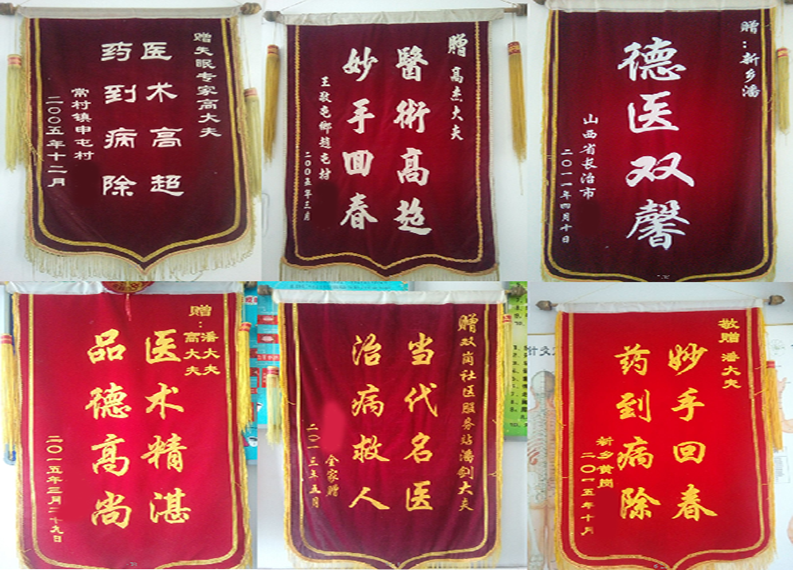 赠失眠专家高大夫
医术高超
药到病除
常村镇申屯村
二〇〇五年十二月
赠 高杰大夫
醫術高超
妙手回春
王敬屯鄉趙屯村
二〇〇五年三月
赠：新乡潘
德医双馨
山西省长治市
二〇一一年四月十日
赠：潘大夫
高大夫
医术精湛
品德高尚
二〇一五年三月二十九日
赠双岗社医服务站潘剑大夫
当代名医
治病救人
全家赠
二〇一三年五月
敬赠 潘大夫
妙手回春
药到病除
新乡黄岗
二〇一五年十月
针灸